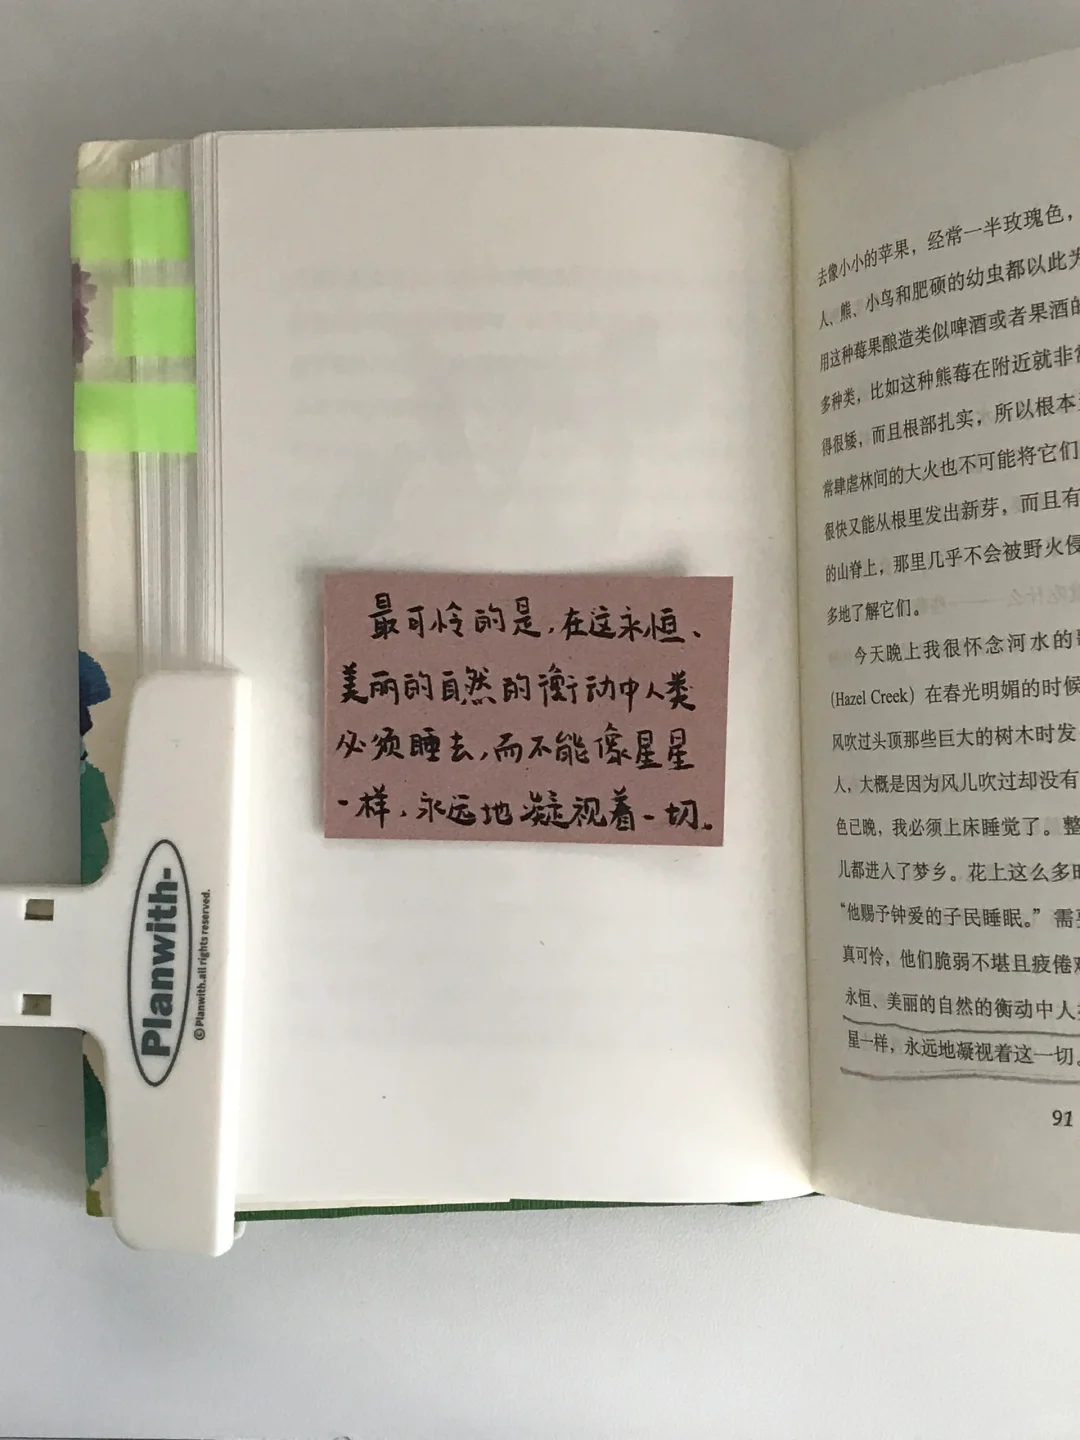 最可怜的是,在这永恒、
美丽的自然的衡动中人类
必须睡去,而不能像星星
一样,永远地凝视着一切。
Planwith-
©Planwith.all rights reserved.
去像小小的苹果，经常一半玫瑰色，
人、熊、小鸟和肥硕的幼虫都以此为
用这种莓果酿造类似啤酒或者果酒的
多种类，比如这种熊莓在附近就非常
得很矮，而且根部扎实，所以根本
常肆虐林间的大火也不可能将它们
很快又能从根里发出新芽，而且有
的山脊上，那里几乎不会被野火侵
多地了解它们。
今天晚上我很怀念河水的
(Hazel Creek) 在春光明媚的时候
风吹过头顶那些巨大的树木时发
人，大概是因为风儿吹过却没有
色已晚，我必须上床睡觉了。整
儿都进入了梦乡。花上这么多时
“他赐予钟爱的子民睡眠。”需
真可怜，他们脆弱不堪且疲倦
永恒、美丽的自然的衡动中人
星一样，永远地凝视着这一切。
91